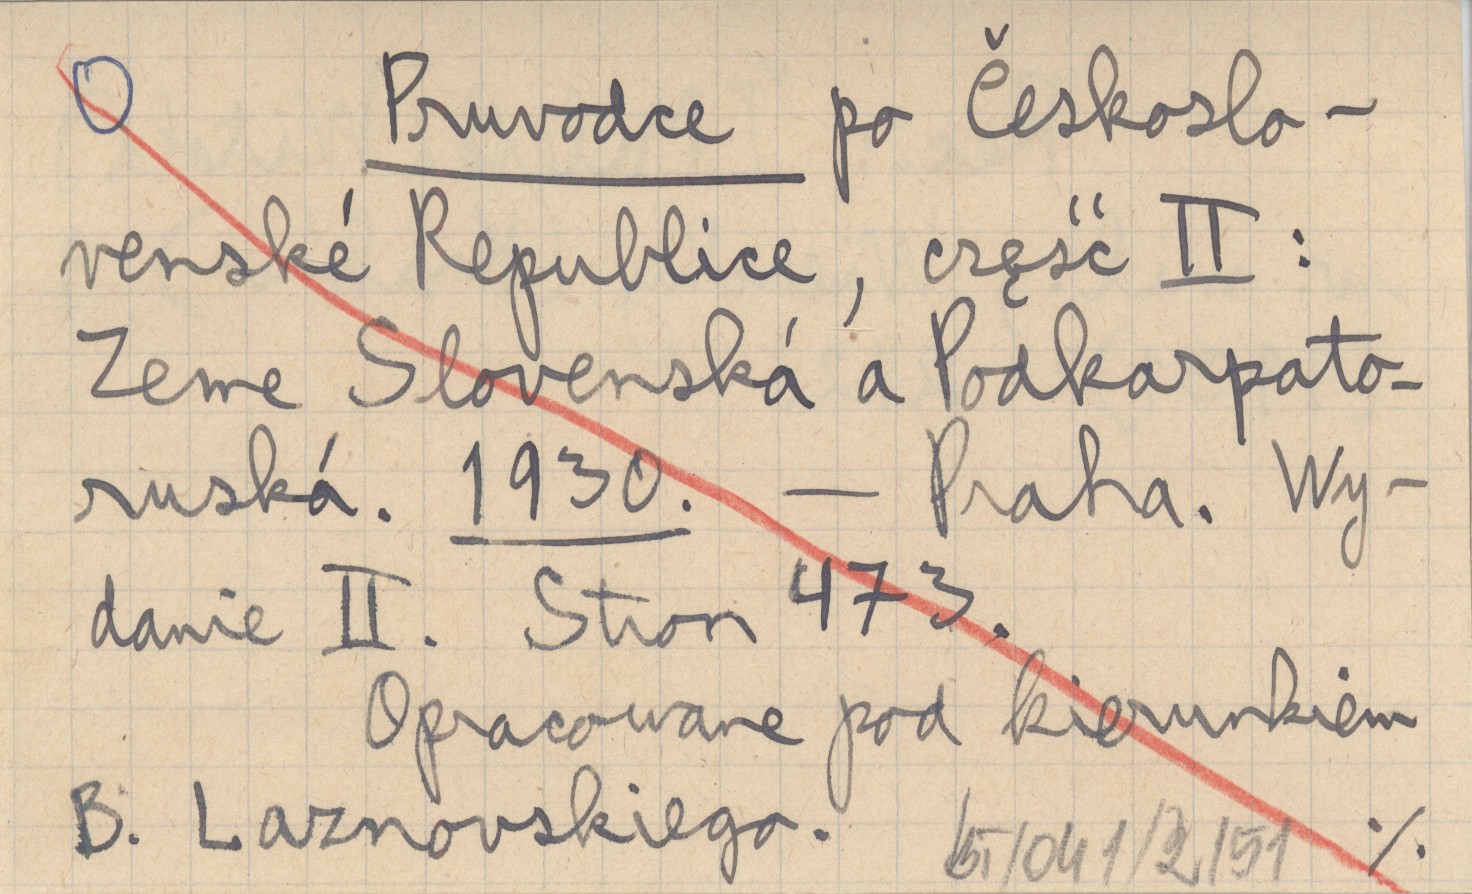 Pruvodce po Českoslo-
venské Republice, część II:
Zeme Slovenská a Podkarpato-
ruská. 1930. — Praha. Wy-
danie II. Stron 473.
Opracowane pod kierunkiem
B. Laznovskiego.
/041/2/51 ./.